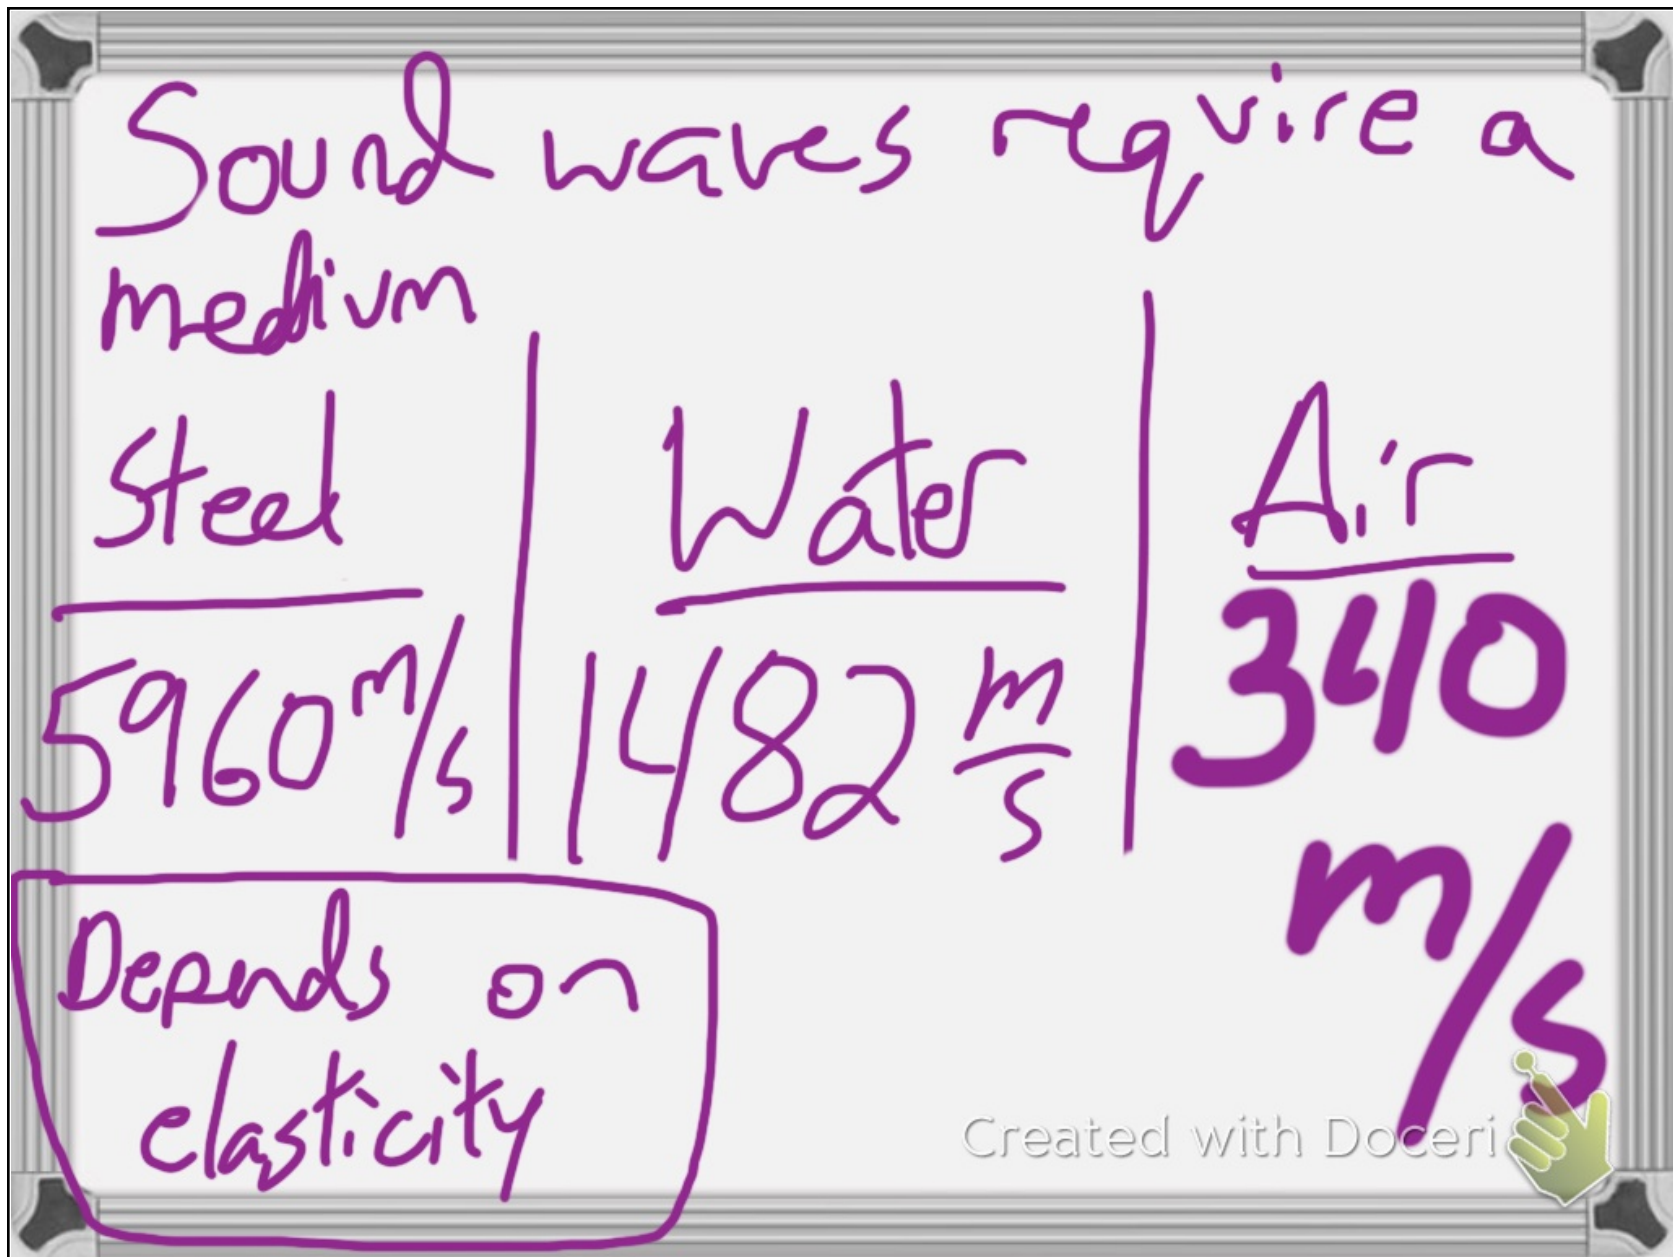 Sound waves require a
medium
Steel
5960 m/s
Water
1482 m/s
Air
340
m/s
Depends on
elasticity
Created with Doceri